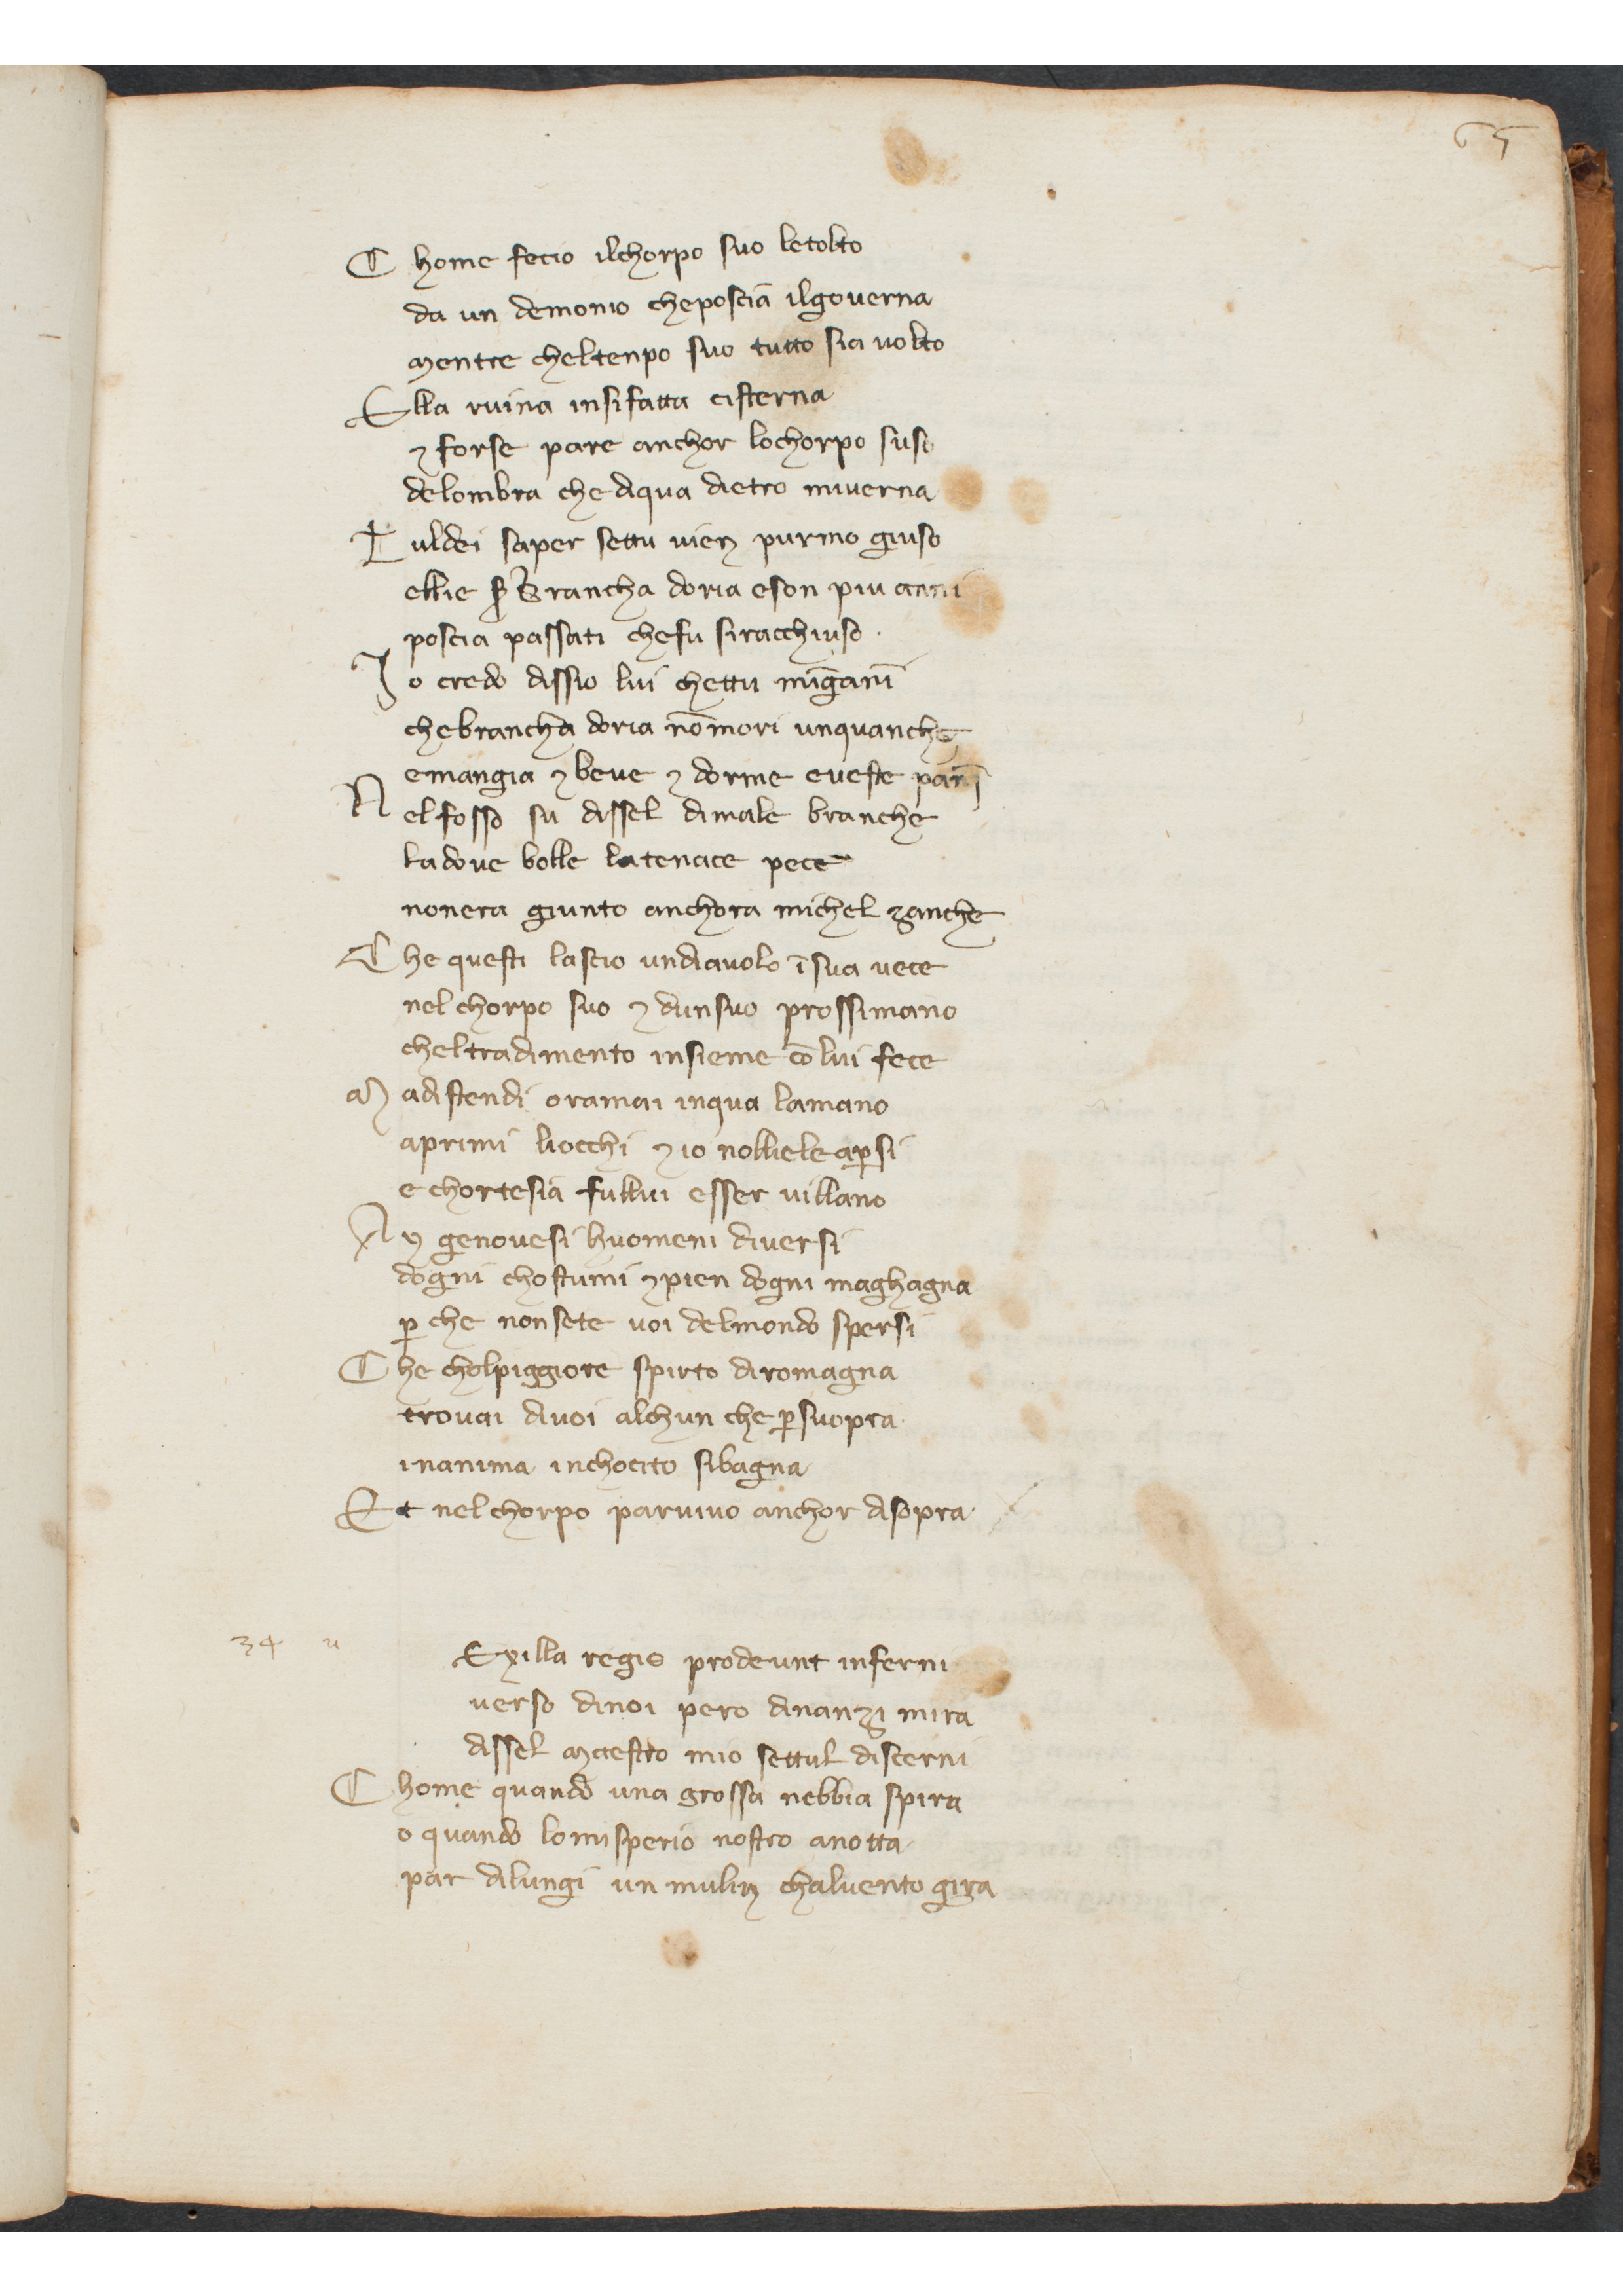 65
C home fecio ilchorpo suo letolto
da un demonio cheposcia ilgoverna
mentre cheltenpo suo tutto sia volto
Ella ruina insifatta cisterna
⁊ forse pare anchor lochorpo suso
delombra che diqua dietro miverna
Tuldei saper settu vien purmo giuso
ellie ẜ Brancha doria eson piu anni
poscia passati chefu siracchiuso
Io credo dissio lui chettu minganni
chebrancha doria nōmori unquanche
emangia ⁊ beve ⁊ dorme eveste panni
Nel fosso su dissel dimale branche
ladove bolle latenace pece
nonera giunto anchora michel zanche
Che questi lascio undiavolo ī sua vece
nel chorpo suo ⁊ dunsuo prossimano
cheltradimento insieme cō lui fece
Madistendi oramai inqua lamano
aprimi liocchi ⁊ io nolliele aꝑsi
e chortesia fullui esser villano
Ay genovesi huomeni diversi
dogni chostumi ⁊pien dogni maghagna
ꝑ che nonsete voi delmondo spersi
Che cholpiggiore spirto diromagna
trovai divoi alchun che ꝑsuopra
inanima inchocito sibagna
Et nel chorpo parvivo anchor disopra
34 u
Exilla regis prodeunt inferni
verso dinoi pero dinanzi mira
dissel maestro mio settul discerni
Chome quando una grossa nebbia spira
o quando lomisperio nostro anotta
par dilungi un mulin chalvento gira